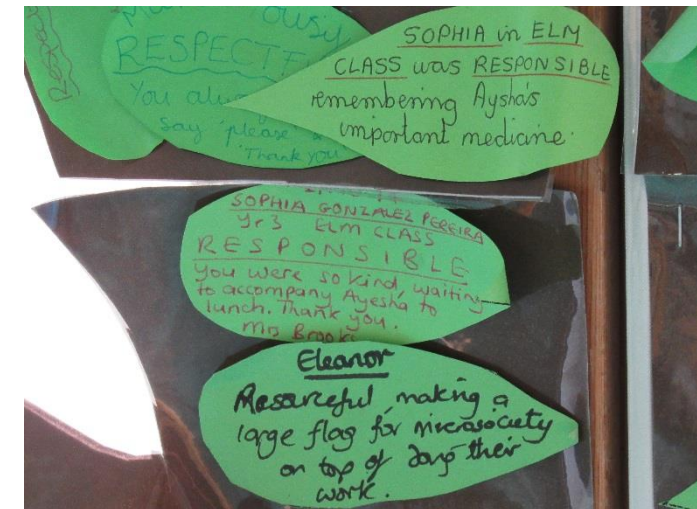 RESPECTF
You alw
say 'please'
'Thank you
SOPHIA in ELM
CLASS was RESPONSIBLE
remembering Aysha's
important medicine.
SOPHIA GONZALEZ PEREIRA
Yr3 ELM CLASS
RESPONSIBLE
You were so kind, waiting
to accompany Ayesha to
lunch. Thank you.
Mrs Brooks
Eleanor
Resourceful, making a
large flag for microsociety
on top of doing their
work.